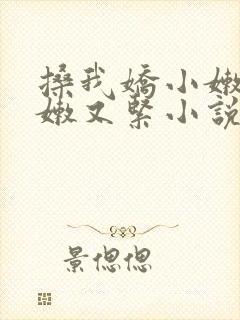 搡我嬌小嫩
嫩又緊小說
景偲偲